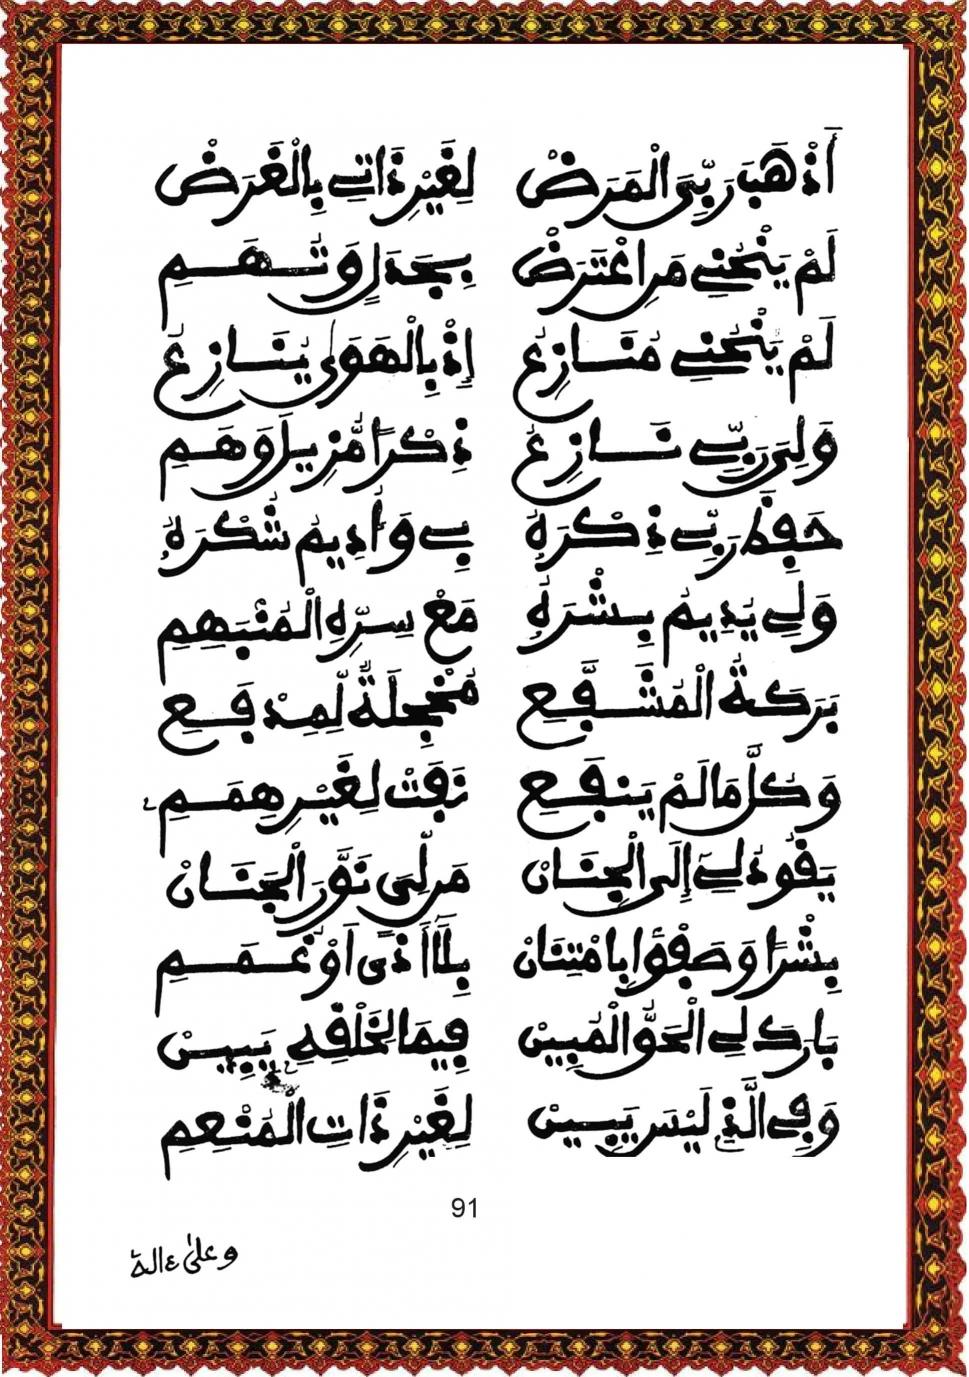 أَذْهَبَ رَبِّىَ الْمَرَضْ لِغَيْرِ ذَاتِے بِالْغَرَضْ
لَمْ يَنْحُنِے مَنِ اعْتَرَضْ بِجَدَلٍ وَتُهَمِ
لَمْ يَنْحُنِے مُنَازِعُ إِذْ بِالْهَوَىٰ يُنَازِعُ
وَلِىَ رَبِّے نَازِعُ ذِكْرًا مُّزِيلَ وَهَمِ
حَفِظَ رَبِّے ذِكْرَهُ بِے وَأُدِيمُ شُكْرَهُ
وَلِے يُدِيمُ بِشْرَهُ مَعْ سِرِّهِ الْمُنْبَهِمِ
بَرَكَةُ الْمُشَفَّعِ مُخْجِلَةٌ لِّمِدْفَعِ
وَكُلُّ مَا لَمْ يَنفَعِ نَفَتْ لِغَيْرِ هِمَمِے
يَقُودُ لِے إِلَى الْجِنَانْ مَن لِّىَ نَوَّرَ الْجَنَانْ
بِشْرًا وَصَفْوًا بِامْتِنَانْ بِلَا أَذًى اَوْ غُمَمِ
بَارَكَ لِے الْحَقُّ الْمُبِينْ فِيمَا لِخَلْقِهِ يَبِينْ
وَفِے الَّذِے لَيْسَ يَبِينْ لِغَيْرِ ذَاتِ الْمُنْعِمِ
91
وعلىٰ ءاله